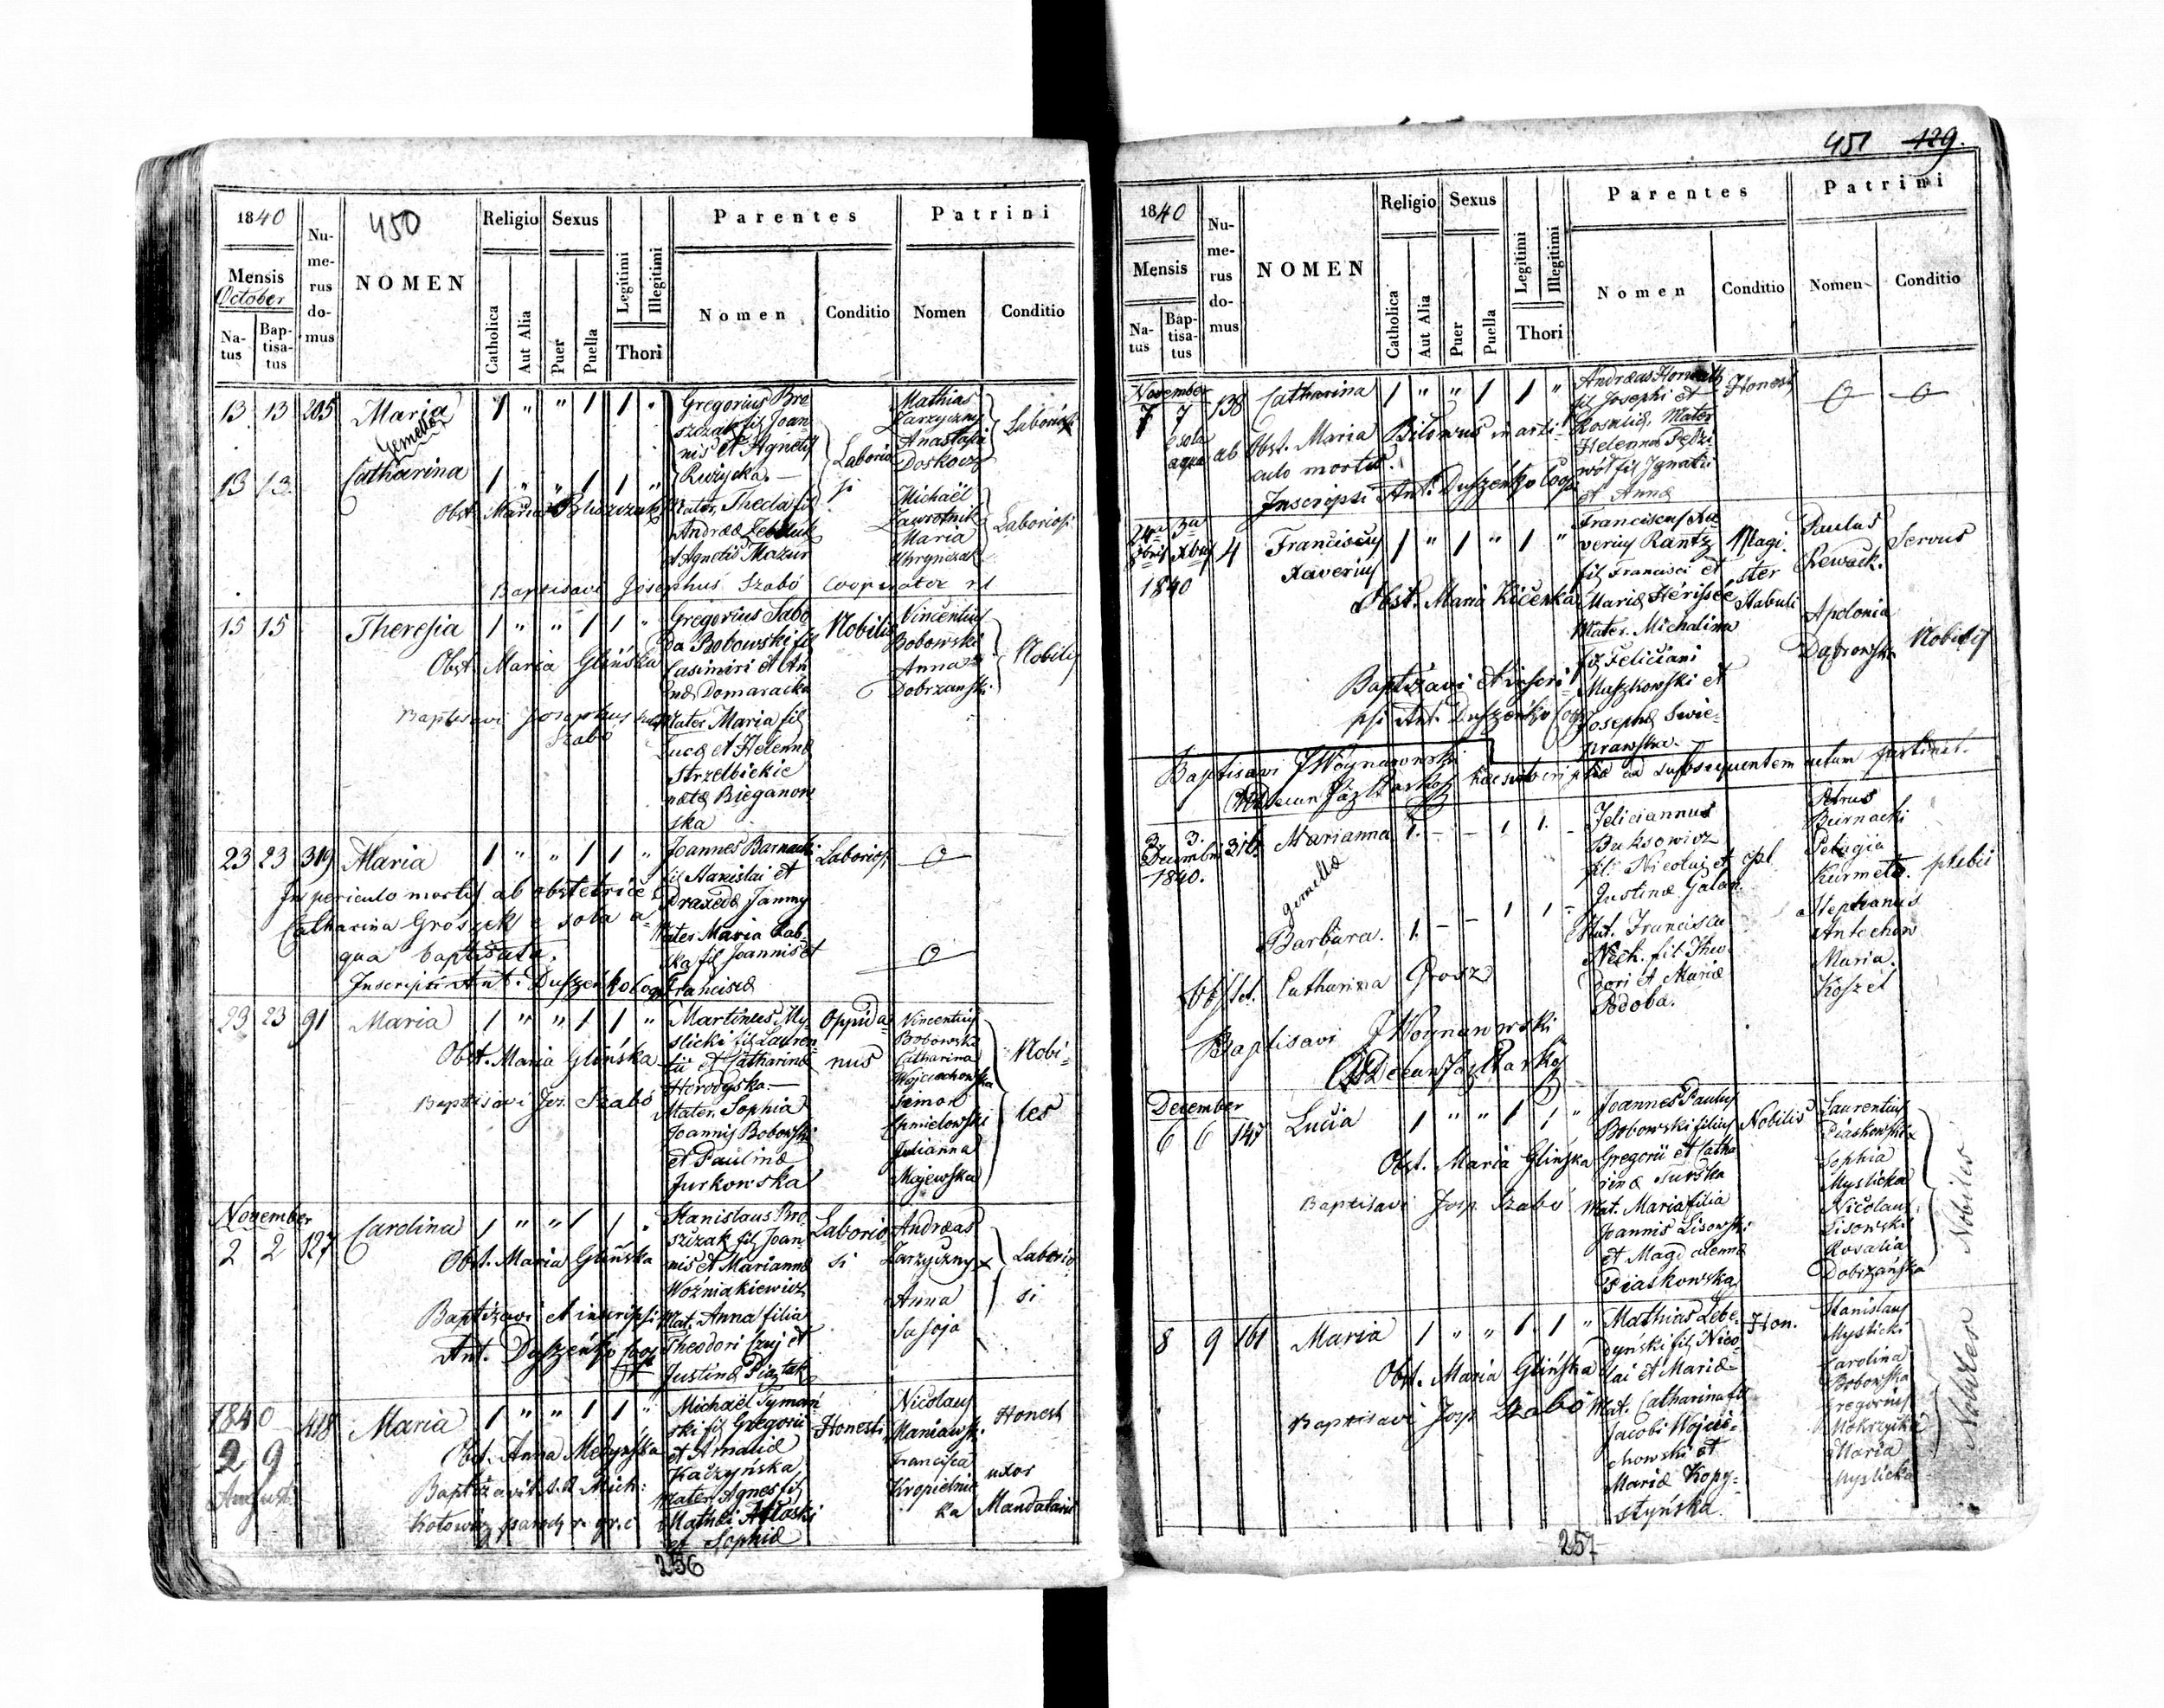 450
1840
Mensis
October
Na-
tus
Bap-
tisa-
tus
Nu-
me-
rus
do-
mus
NOMEN
Religio
Catholica
Aut Alia
Sexus
Puer
Puella
Legitimi
Illegitimi
Thori
Parentes
Nomen
Conditio
Patrini
Nomen
Conditio
13 13 205 Maria 1 " " 1 1 "
Gemellæ
13 13 Catharina 1 " " 1 1 "
Obst. Maria
Gregorius Bro
szczak fil Joan-
nis et Agnetis
Ruzycka.
Mater Theda fil
Andreæ
et Agnetis Mazur
Laborio
si
Mathias
Zarzyczny
Anastasia
Doskocz
Laboriosi
Michaël
Zawrotnik
Maria
Laboriosi
Baptisavi Josephus Szabó Cooperator
15 15 Theresia 1 " " 1 1 "
Obst. Maria Glińska
Baptisavi Josephus
Szabó
Gregorius Sabo
Da Bobowski fil
Casimiri et An
næ Domaracka
Mater Maria fil
Lucæ et Helennæ
Strzelbickie
natæ Bieganow
ska
Nobilis
Vincentius
Bobowski
Anna
Dobrzanski
Nobiles
23 23 319 Maria 1 " " 1 1 "
In periculo mortis ab obstetrice
Catharina Groszek e sola a-
qua baptisata.
Inscripsi Ant. Duszeńko Coop
Joannes Barnacki
fil Stanislai et
Praxedæ Jamny
Mater Maria Bab-
ska fil Joannis et
Franciscæ
Laboriosi
23 23 91 Maria 1 " " 1 1 "
Obst. Maria Glińska
Baptisavi Jos. Szabó
Martinus My-
slicki fil Lauren-
tii et Catharinæ
Horodyska.—
Mater. Sophia
Joannis Bobowski
et Paulinæ
Jurkowska
Oppida
nus
Vincentius
Bobowski
Catharina
Wojciechowska
Simon
Chmielowski
Julianna
Majewska
Nobi-
les
November
2 2 127 Carolina 1 " " 1 1 "
Obst. Maria Glińska
Baptizavi et inscripsi
Ant. Duszeńko Coop
Stanislaus Bro
szczak fil Joan
nis et Mariannæ
Woźniakiewicz
Mat. Anna filia
Theodori Czuj et
Justinæ Piąztak
Laborio
si
Andreas
Zarzyczny x
Anna
Sasoja
Laborio
si
1840
2 9
August
418 Maria 1 " " 1 1 "
Obst. Anna Medyńska
Baptizavit A. R. Mich:
Kotowicz paroch r. gr. c
Michaël Tyman
ski fil Gregorii
et Amaliæ
Kaczyńska
Mater Agnes fil
Mathæi
et Sophiæ
Honesti
Nicolaus
Maniawsk.
Francisca
Kropielnic
ka
Honest
uxor
Mandatarii
256
451 129.
1840
Mensis
Na-
tus
Bap-
tisa-
tus
Nu-
me-
rus
do-
mus
NOMEN
Religio
Catholica
Aut Alia
Sexus
Puer
Puella
Legitimi
Illegitimi
Thori
Parentes
Nomen
Conditio
Patrini
Nomen
Conditio
November
7 7 138 Catharina 1 " " 1 1 "
e sola
aqua ab Obst. Maria Bilowus in arti-
culo mortis.
Inscripsi Ant. Duszeńko Coop
Andreas Horwath
fil Josephi et
Rosaliæ, Mater
Helenna Pędzi
wół fil Ignatii
et Annæ
Honest
24a 3a
9bris Xbris
1840
4 Franciscus 1 " 1 " 1 "
Xaverius
Obst. Maria Kičerka
Baptizavi et inscri-
psi Ant. Duszeńko Coop
Franciscus Xa
verius Rantz
fil Francisci et
Mariæ Hérissée
Mater. Michalina
fil Feliciani
Maszkowski et
Josephæ Swie-
prawska.
Magi-
ster
Stabuli
Paulus
Rewack.
Servus
Apolonia
Dąbrowska
Nobilis
Baptisavi J Woynarowski
hæc subscriptio ad subsequentem actum pertinet.
3. 3. 316 Marianna 1. - - 1 1. -
Decembr
1840.
gemellæ
Barbara. 1. - - 1 1 -
Obstet. Catharina Grosz
Baptisavi J Woynarowski
Feliciannus
Buksowicz
fil. Nicolai et
Justinæ Galan
Mat. Francisca
Nech. fil. Theo-
dori et Mariæ
Podoba.
Petrus
Burnacki
Pelagia
Kurmeta.
plebei
Stephanus
Antochow
Maria
Koszel
December
6 6 147 Lucia 1 " " 1 1 "
Obst. Maria Glińska
Baptisavi Josp. Szabó
Joannes Paulus
Bobowski filius
Gregorii et Catha
rinæ Turska
Mat. Maria filia
Joannis Lisowski
et Magdalennæ
Piaskowska
Nobilis
Laurentius
Piaskowski x
Sophia
Myslicka
Nicolaus
Lisowski
Rosalia
Dobrzańska
Nobiles
8 9 161 Maria 1 " " 1 1 "
Obst. Maria Glińska
Baptisavi Josp Szabó
Mathias Lebe-
dyński fil Nico-
lai et Mariæ
Mat. Catharina fil
Jacobi Wojcie-
chowski et
Mariæ Kopy-
styńska
Hon.
Stanislaus
Myslicki
Carolina
Bobowska
Gregorius
Mokrzycki
Maria
Myslicka
Nobiles
257